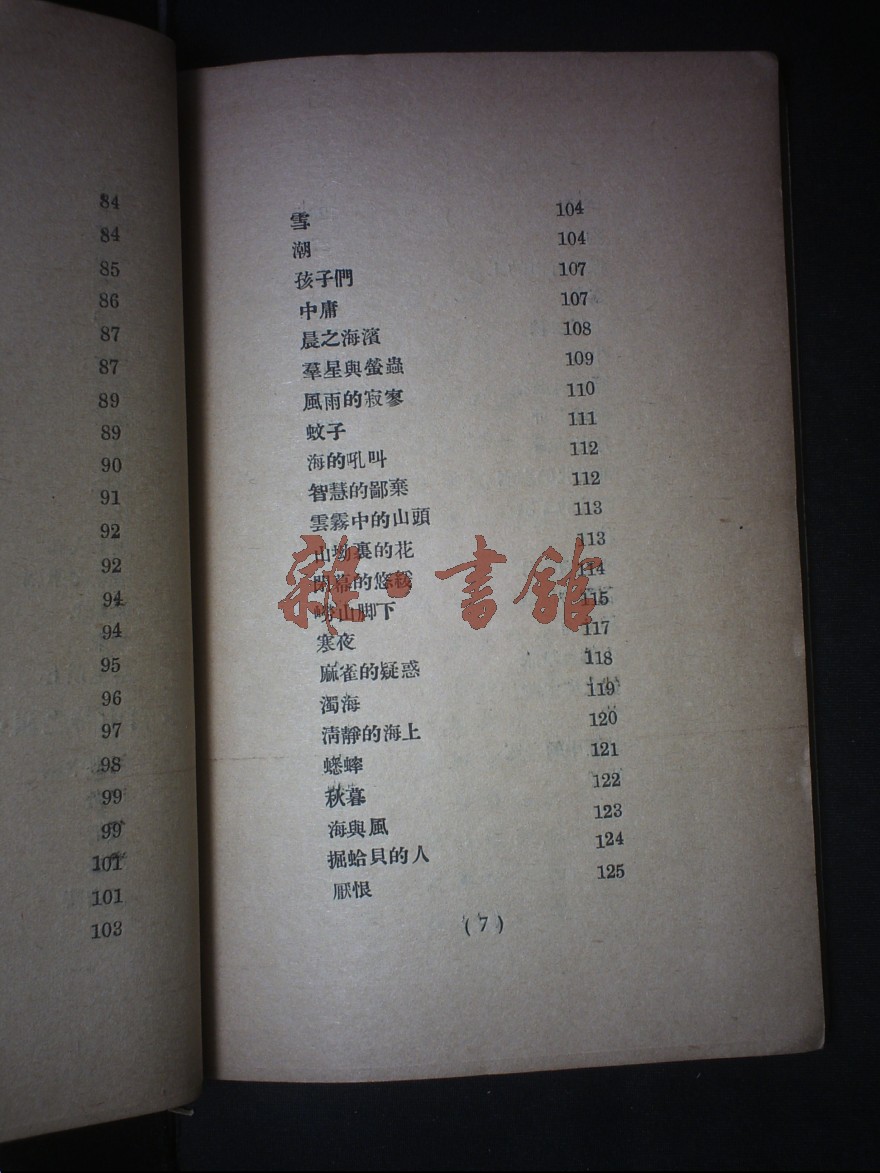 84
84
85
86
87
87
89
89
90
91
92
92
94
94
95
96
97
98
99
99
101
101
103
雪 104
潮 104
孩子們 107
中庸 107
晨之海濱 108
羣星與螢蟲 109
風雨的寂寥 110
蚊子 111
海的吼叫 112
智慧的鄙棄 112
雲霧中的山頭 113
山坳裏的花 113
閉幕的悠 114
山脚下 115
寒夜 117
麻雀的疑惑 118
濁海 119
清靜的海上 120
蟋蟀 121
秋暮 122
海與風 123
掘蛤貝的人 124
厭恨 125
(7)
雜·書館